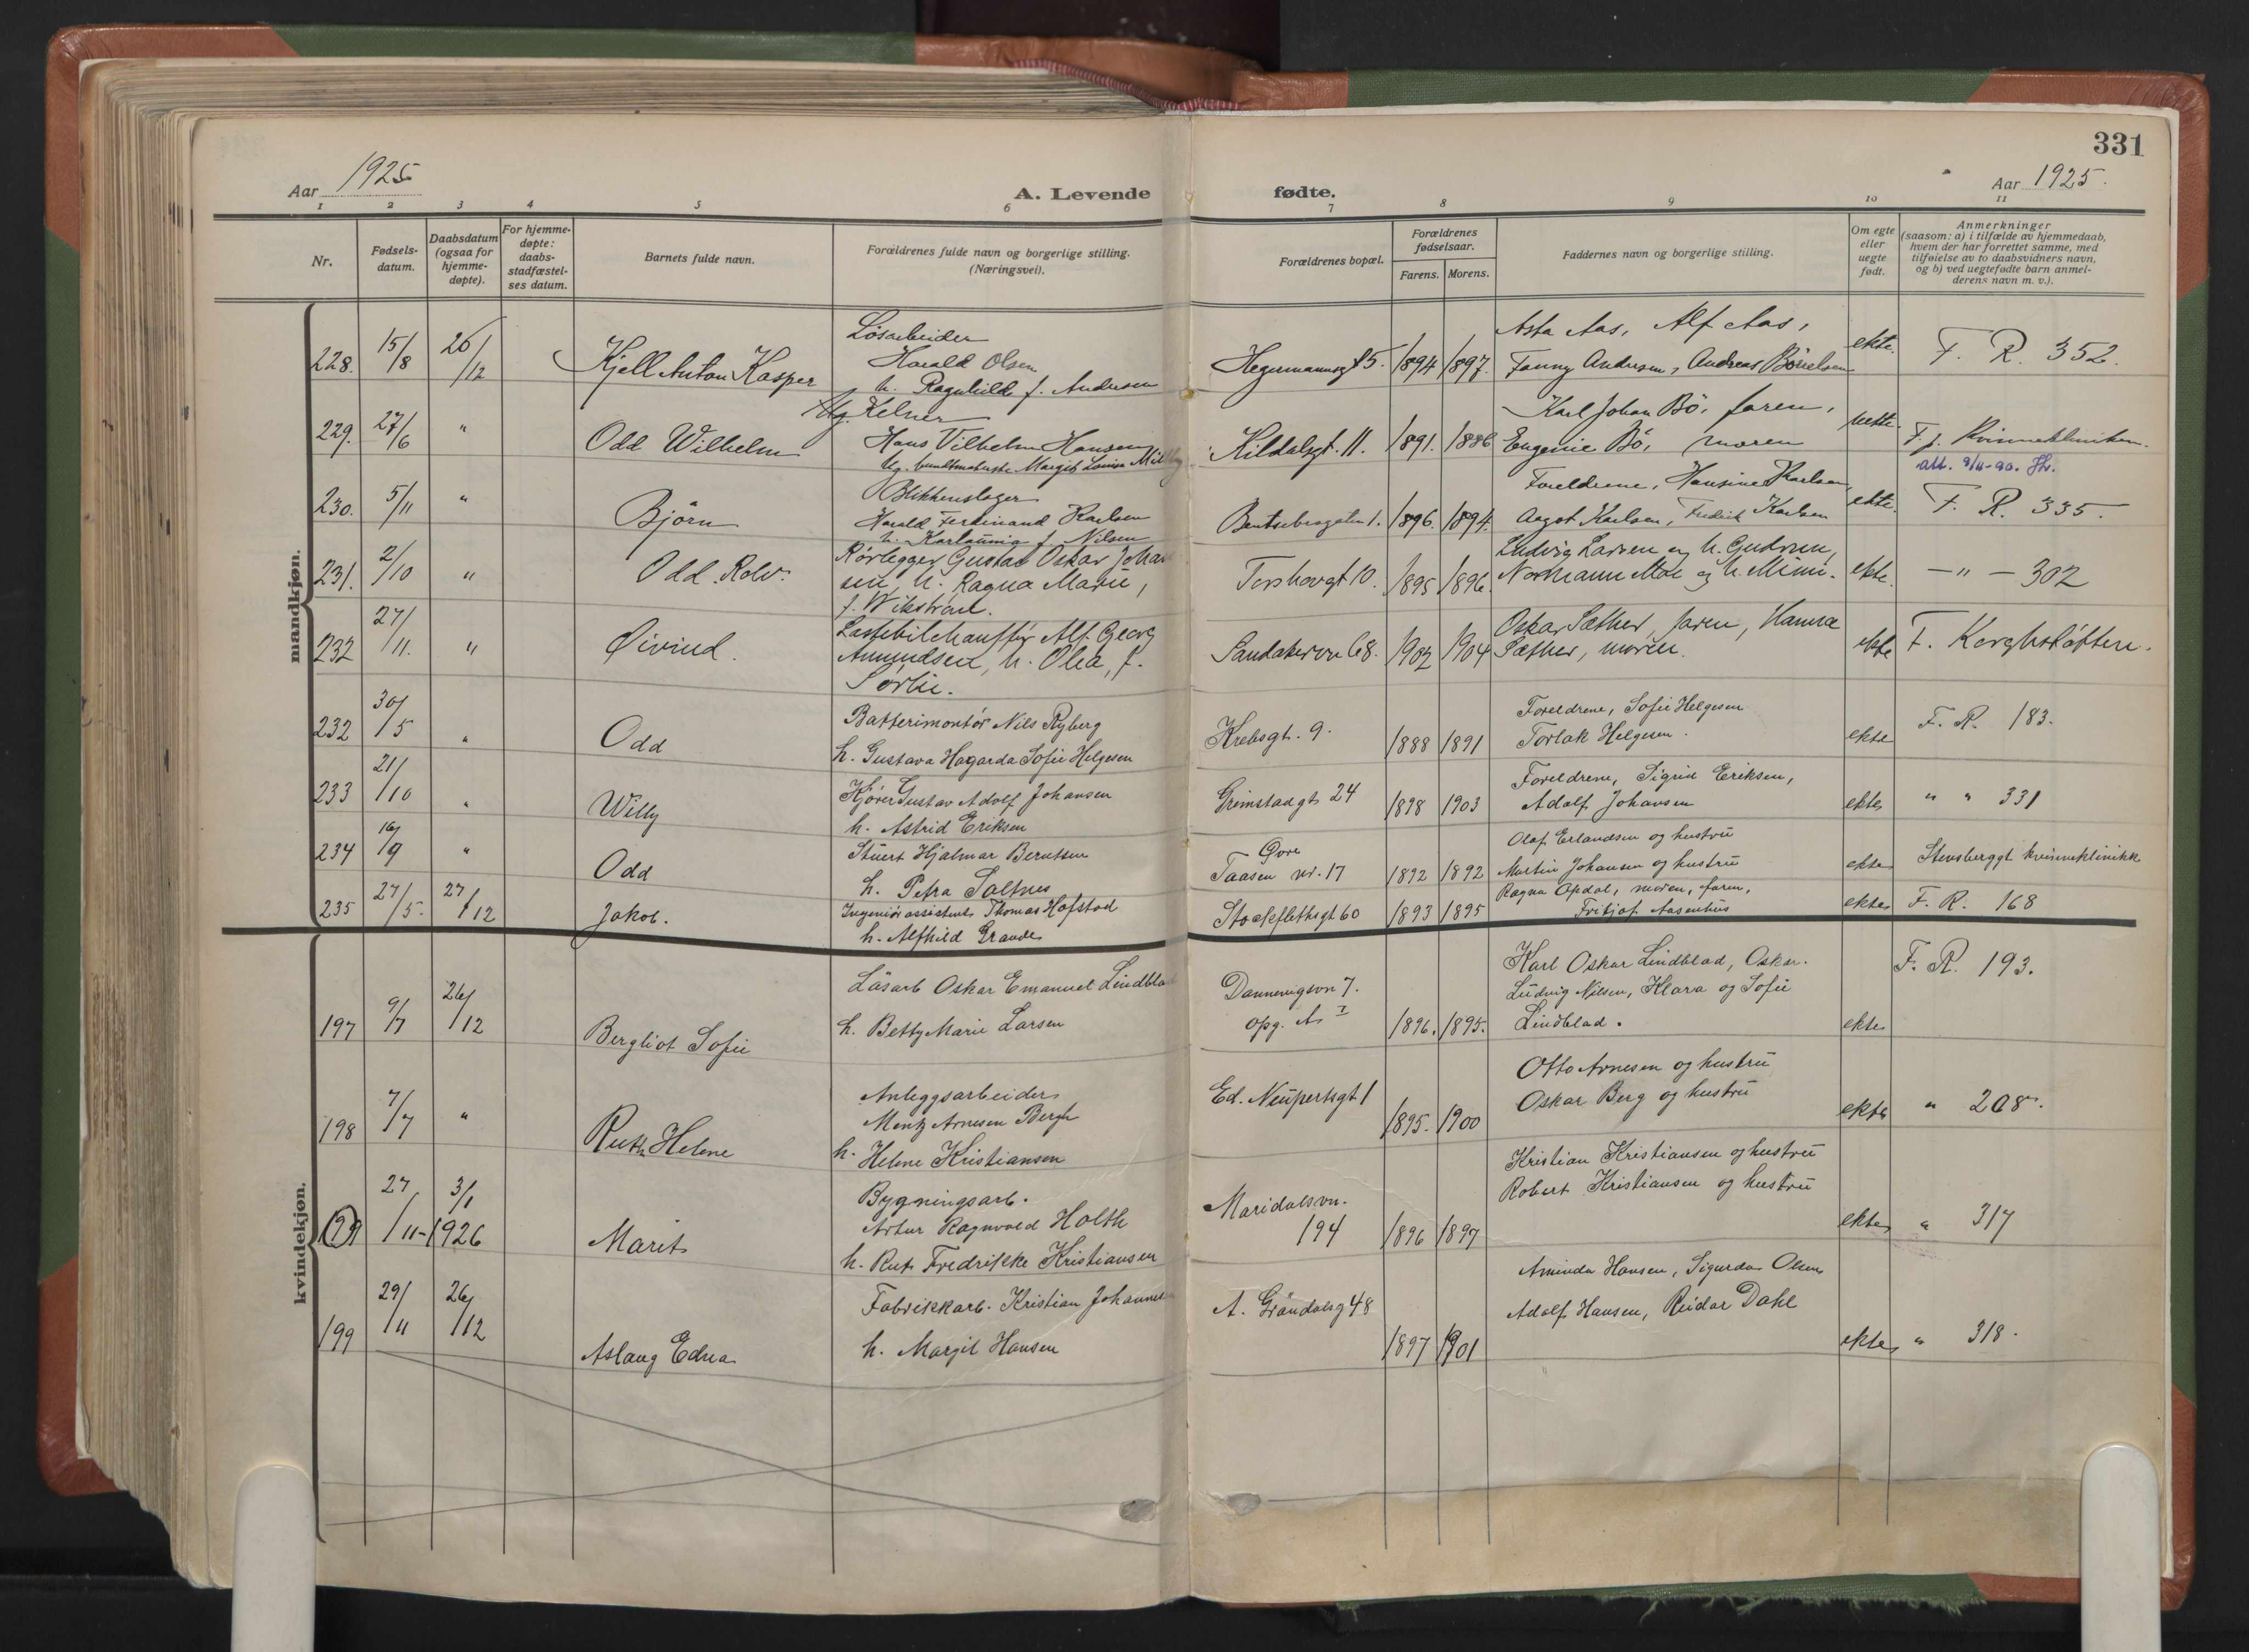 331
Aar 1925
A. Levende fødte.
Aar 1925.
1 2 3 4 5 6 7 8 9 10 11
Nr.
Fødsels-
datum.
Daabsdatum
(ogsaa for
hjemme-
døpte).
For hjemme-
døpte:
daabs-
stadfæstel-
ses datum.
Barnets fulde navn.
Forældrenes fulde navn og borgerlige stilling.
(Næringsvei).
Forældrenes bopæl.
Forældrenes
fødselsaar.
Farens. Morens.
Faddernes navn og borgerlige stilling.
Om egte
eller
uegte
født.
Anmerkninger
(saasom: a) i tilfælde av hjemmedaab,
hvem der har forrettet samme, med
tilføielse av to daabsvidners navn,
og b) ved uegtefødte barn anmel-
derens navn m. v.).
mandkjøn.
228. 15/8 26/12 Kjell Anton Kasper
Løsarbeider
Harald Olsen
h. Ragnhild f. Andresen
Hegermannsgt 5. 1894 1897.
Asta Aas, Alf Aas,
Fanny Andresen, Andreas
ekte. F. R. 352.
229. 27/6 " Odd Wilhelm
Ug. Kelner
Hans Vilhelm Hansen
Ug. Margit Louise
Kildalsgt. 11. 1891. 1886
Karl Johan Bö, faren,
Eugenie Bö, moren
uekte. F. f. Kvinneklinikken.
att. 9/11-90.
230. 5/11 " Björn
Blikkenslager
Harald Ferdinand Karlsen
h. f. Nilsen
Bentsebrogaten 1. 1896. 1894.
Foreldrene, Hansine Karlsen,
Aagot Karlsen, Fredrik Karlsen
ekte. F. R. 335.
231. 2/10 " Odd Rolv.
Rørlegger Gustav Oskar Johan
sen, h. Ragna Marie,
f. Wikstrøm.
Torshovgt 10. 1895 1896.
Ludvig Larsen og h. Gudrun,
Normann Moe og h. Mimi.
ekte. — " — 302
232 27/11. " Øivind.
Lastebilchauffør Alf Georg
Amundsen, h. Olea, f.
Sørlie.
Sandakervn 68. 1902 1904
Oskar Sæther, faren, Hanna
Sæther, moren.
ekte F.
232 30/5 " Odd
Batterimontör Nils Ryberg
h. Gustava Hagarda Sofie Helgesen
Krebsgt. 9. 1888 1891
Foreldrene, Sofie Helgesen
Torlak Helgesen.
ekte F. R. 183.
233 21/10 " Willy
Kjører Gustav Adolf Johansen
h. Astrid Eriksen
Grimstadgt 24 1898 1903
Foreldrene, Sigrid Eriksen,
Adolf Johansen
ekte " " 331
234 16/9 " Odd
Stuert Hjalmar Berntsen
h. Petra Saltnes
Øvre
Taasen vr. 17 1892 1892
Olaf Erlandsen og hustru
Martin Johansen og hustru
ekte Stensberggt kvinneklinikk
235 27/5. 27/12 Jakob.
Ingeniörassistent Thomas Hofstad
h. Alfhild Grande
Stockflethsgt 60 1893 1895
Ragna Opdal, moren, faren,
Fritjof Aasenhus
ekte F. R. 168
kvindekjøn.
197 9/7 26/12 Bergliot Sofie
Lösarb Oskar Emanuel Lindblad
h. Betty Marie Larsen
Dannevigsvn 7.
opg. A I 1896. 1895.
Karl Oskar Lindblad, Oskar.
Ludvig Nilsen, Klara og Sofie
Lindblad.
ekte F. R. 193.
198 7/7 " Ruth Helene
Anleggsarbeider
Mentz Arnesen Bergh
h. Helene Kristiansen
Ed. Neupertsgt 1 1895. 1900
Otto Arnesen og hustru
Oskar Berg og hustru
ekte " 208.
27/11- 3/1 1926 Marit
Bygningsarb.
Artur Ragnvald Holth
h. Rut Fredrikke Kristiansen
Maridalsvn.
194 1896 1897
Kristian Kristiansen og hustru
Robert Kristiansen og hustru
ekte " 317
199 29/11 26/12 Aslaug Edna
Fabrikkarb. Kristian Johannes
h. Margit Hansen
A. Gröndalsg 48 1897 1901
Aminda Hansen, Sigurda Olsen
Adolf Hansen, Reidar Dahl
ekte " 318.